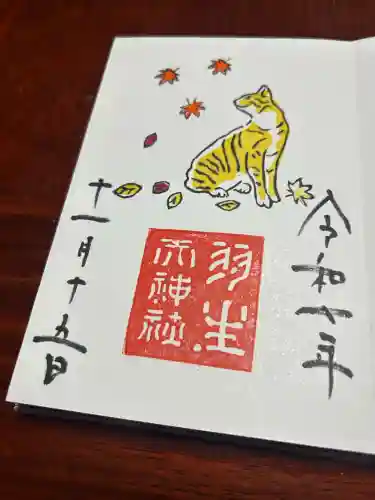 令和七年
羽生
天神社
十一月十五日